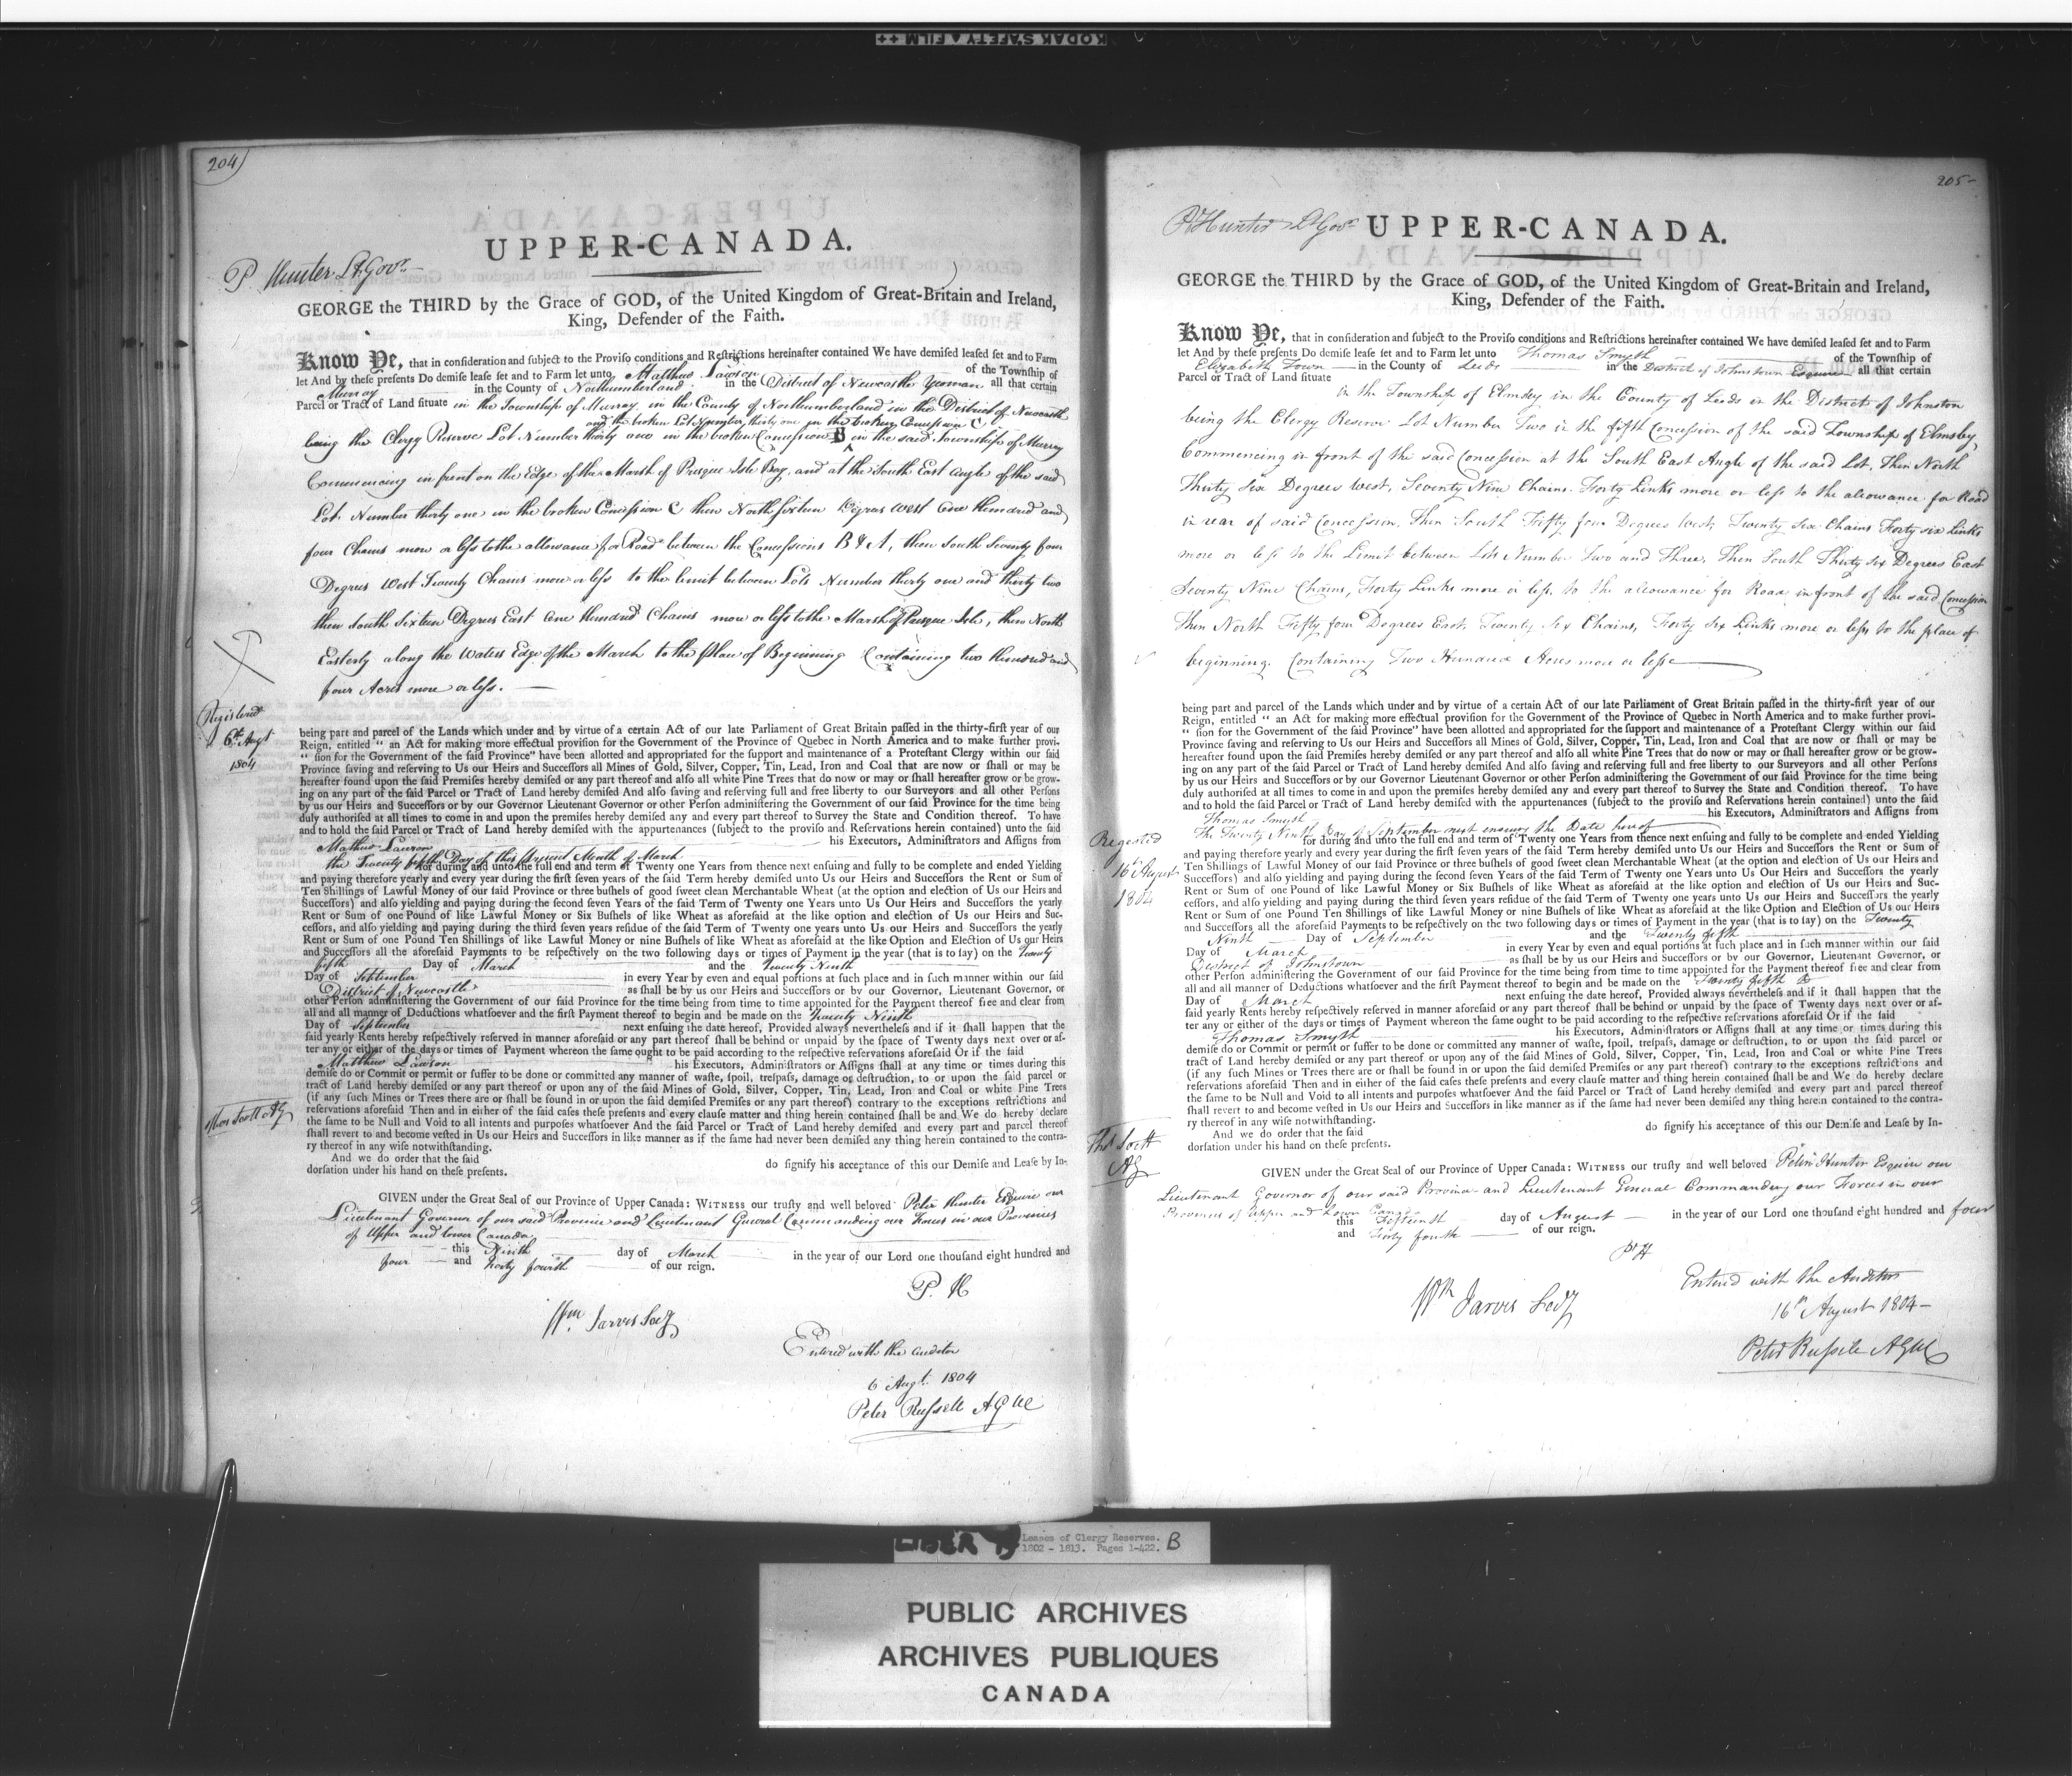 KODAK SAFETY FILM ++
204
UPPER-CANADA.
P Hunter Lt. Govr.
GEORGE the THIRD by the Grace of GOD, of the United Kingdom of Great-Britain and Ireland,
King, Defender of the Faith.
Know Ye, that in consideration and subject to the Proviso conditions and Restrictions hereinafter contained We have demised leased set and to Farm
let And by these presents Do demise lease set and to Farm let unto Matthew Lawson of the Township of
Murray in the County of Northumberland in the District of Newcastle Yeoman all that certain
Parcel or Tract of Land situate in the Township of Murray in the County of Northumberland in the District of Newcastle
and the broken Lot Number thirty one in the broken Concession C
being the Clergy Reserve Lot Number thirty one in the broken Concession B in the said Township of Murray
Commencing in front on the Edge of the Marsh of Presque Isle Bay, and at the South East angle of the said
Lot Number thirty one in the broken Concession C then North sixteen Degrees West One Hundred and
four Chains more or less to the allowance for Road between the Concessions B & A, then South Seventy four
Degrees West Twenty Chains more or less to the limit between Lots Number thirty one and thirty two
then South Sixteen Degrees East One Hundred Chains more or less to the Marsh of Presque Isle, then North
Easterly along the Waters Edge of the Marsh to the Place of Beginning Containing two Hundred and
four Acres more or less.
Registered
6th Augt
1804
being part and parcel of the Lands which under and by virtue of a certain Act of our late Parliament of Great Britain passed in the thirty-first year of our
Reign, entitled “ an Act for making more effectual provision for the Government of the Province of Quebec in North America and to make further provi-
“ sion for the Government of the said Province” have been allotted and appropriated for the support and maintenance of a Protestant Clergy within our said
Province saving and reserving to Us our Heirs and Successors all Mines of Gold, Silver, Copper, Tin, Lead, Iron and Coal that are now or shall or may be
hereafter found upon the said Premises hereby demised or any part thereof and also all white Pine Trees that do now or may or shall hereafter grow or be grow-
ing on any part of the said Parcel or Tract of Land hereby demised And also saving and reserving full and free liberty to our Surveyors and all other Persons
by us our Heirs and Successors or by our Governor Lieutenant Governor or other Person administering the Government of our said Province for the time being
duly authorised at all times to come in and upon the premises hereby demised any and every part thereof to Survey the State and Condition thereof. To have
and to hold the said Parcel or Tract of Land hereby demised with the appurtenances (subject to the proviso and Reservations herein contained) unto the said
Mathew Lawson his Executors, Administrators and Assigns from
the Twenty fifth Day of this Present Month of March
for during and unto the full end and term of Twenty one Years from thence next ensuing and fully to be complete and ended Yielding
and paying therefore yearly and every year during the first seven years of the said Term hereby demised unto Us our Heirs and Successors the Rent or Sum of
Ten Shillings of Lawful Money of our said Province or three bushels of good sweet clean Merchantable Wheat (at the option and election of Us our Heirs and
Successors) and also yielding and paying during the second seven Years of the said Term of Twenty one Years unto Us Our Heirs and Successors the yearly
Rent or Sum of one Pound of like Lawful Money or Six Bushels of like Wheat as aforesaid at the like option and election of Us our Heirs and Suc-
cessors, and also yielding and paying during the third seven years residue of the said Term of Twenty one years unto Us our Heirs and Successors the yearly
Rent or Sum of one Pound Ten Shillings of like Lawful Money or nine Bushels of like Wheat as aforesaid at the like Option and Election of Us our Heirs
and Successors all the aforesaid Payments to be respectively on the two following days or times of Payment in the year (that is to say) on the Twenty
fifth Day of March and the Twenty Ninth
Day of September in every Year by even and equal portions at such place and in such manner within our said
District of Newcastle as shall be by us our Heirs and Successors or by our Governor, Lieutenant Governor, or
other Person administering the Government of our said Province for the time being from time to time appointed for the Payment thereof free and clear from
all and all manner of Deductions whatsoever and the first Payment thereof to begin and be made on the Twenty Ninth
Day of September next ensuing the date hereof, Provided always nevertheless and if it shall happen that the
said yearly Rents hereby respectively reserved in manner aforesaid or any part thereof shall be behind or unpaid by the space of Twenty days next over or af-
ter any or either of the days or times of Payment whereon the same ought to be paid according to the respective reservations aforesaid Or if the said
Matthew Lawson his Executors, Administrators or Assigns shall at any time or times during this
demise do or Commit or permit or suffer to be done or committed any manner of waste, spoil, trespass, damage or destruction, to or upon the said parcel or
tract of Land hereby demised or any part thereof or upon any of the said Mines of Gold, Silver, Copper, Tin, Lead, Iron and Coal or white Pine Trees
(if any such Mines or Trees there are or shall be found in or upon the said demised Premises or any part thereof) contrary to the exceptions restrictions and
reservations aforesaid Then and in either of the said cases these presents and every clause matter and thing herein contained shall be and We do hereby declare
the same to be Null and Void to all intents and purposes whatsoever And the said Parcel or Tract of Land hereby demised and every part and parcel thereof
shall revert to and become vested in Us our Heirs and Successors in like manner as if the same had never been demised any thing herein contained to the contra-
ry thereof in any wise notwithstanding.
Thos Scott AG
And we do order that the said do signify his acceptance of this our Demise and Lease by In-
dorsation under his hand on these presents.
GIVEN under the Great Seal of our Province of Upper Canada: WITNESS our trusty and well beloved Peter Hunter Esquire our
Lieutenant Governor of our said Province and Lieutenant General Commanding our Forces in our Provinces
of Upper and lower Canada
this Ninth day of March in the year of our Lord one thousand eight hundred and
four and Forty fourth of our reign.
P. H
Wm. Jarvis Secy
Entered with the auditor
6 Augt. 1804
Peter Russell A G
205
P Hunter Lt Govr
UPPER-CANADA.
GEORGE the THIRD by the Grace of GOD, of the United Kingdom of Great-Britain and Ireland,
King, Defender of the Faith.
Know Ye, that in consideration and subject to the Proviso conditions and Restrictions hereinafter contained We have demised leased set and to Farm
let And by these presents Do demise lease set and to Farm let unto Thomas Smyth of the Township of
Elizabeth Town in the County of Leeds in the District of Johnstown Esquire all that certain
Parcel or Tract of Land situate
in the Township of Elmsley in the County of Leeds in the District of Johnston
being the Clergy Reserve Lot Number Two in the fifth Concession of the said Township of Elmsby,
Commencing in front of the said Concession at the South East Angle of the said Lot, Then North
Thirty Six Degrees West, Seventy Nine Chains Forty Links more or less to the allowance for Road
in rear of said Concession, Then South Fifty four Degrees West, Twenty Six Chains Forty six Links
more or less to the Limit between Lots Number Two and Three, Then South Thirty Six Degrees East
Seventy Nine Chains, Forty Links more or less to the allowance for Road in front of the said Concession
Then North Fifty four Degrees East, Twenty Six Chains, Forty Six Links more or less to the place of
beginning. Containing Two Hundred Acres more or less
being part and parcel of the Lands which under and by virtue of a certain Act of our late Parliament of Great Britain passed in the thirty-first year of our
Reign, entitled “ an Act for making more effectual provision for the Government of the Province of Quebec in North America and to make further provi-
“ sion for the Government of the said Province” have been allotted and appropriated for the support and maintenance of a Protestant Clergy within our said
Province saving and reserving to Us our Heirs and Successors all Mines of Gold, Silver, Copper, Tin, Lead, Iron and Coal that are now or shall or may be
hereafter found upon the said Premises hereby demised or any part thereof and also all white Pine Trees that do now or may or shall hereafter grow or be grow-
ing on any part of the said Parcel or Tract of Land hereby demised And also saving and reserving full and free liberty to our Surveyors and all other Persons
by us our Heirs and Successors or by our Governor Lieutenant Governor or other Person administering the Government of our said Province for the time being
duly authorised at all times to come in and upon the premises hereby demised any and every part thereof to Survey the State and Condition thereof. To have
and to hold the said Parcel or Tract of Land hereby demised with the appurtenances (subject to the proviso and Reservations herein contained) unto the said
Thomas Smyth his Executors, Administrators and Assigns from
The Twenty Ninth Day of September next ensuing the Date hereof
for during and unto the full end and term of Twenty one Years from thence next ensuing and fully to be complete and ended Yielding
Registed
16th August
1804
and paying therefore yearly and every year during the first seven years of the said Term hereby demised unto Us our Heirs and Successors the Rent or Sum of
Ten Shillings of Lawful Money of our said Province or three bushels of good sweet clean Merchantable Wheat (at the option and election of Us our Heirs and
Successors) and also yielding and paying during the second seven Years of the said Term of Twenty one Years unto Us Our Heirs and Successors the yearly
Rent or Sum of one Pound of like Lawful Money or Six Bushels of like Wheat as aforesaid at the like option and election of Us our Heirs and Suc-
cessors, and also yielding and paying during the third seven years residue of the said Term of Twenty one years unto Us our Heirs and Successors the yearly
Rent or Sum of one Pound Ten Shillings of like Lawful Money or nine Bushels of like Wheat as aforesaid at the like Option and Election of Us our Heirs
and Successors all the aforesaid Payments to be respectively on the two following days or times of Payment in the year (that is to say) on the Twenty
Ninth Day of September and the Twenty fifth
Day of March in every Year by even and equal portions at such place and in such manner within our said
District of Johnstown as shall be by us our Heirs and Successors or by our Governor, Lieutenant Governor, or
other Person administering the Government of our said Province for the time being from time to time appointed for the Payment thereof free and clear from
all and all manner of Deductions whatsoever and the first Payment thereof to begin and be made on the Twenty fifth
Day of March next ensuing the date hereof, Provided always nevertheless and if it shall happen that the
said yearly Rents hereby respectively reserved in manner aforesaid or any part thereof shall be behind or unpaid by the space of Twenty days next over or af-
ter any or either of the days or times of Payment whereon the same ought to be paid according to the respective reservations aforesaid Or if the said
Thomas Smyth his Executors, Administrators or Assigns shall at any time or times during this
demise do or Commit or permit or suffer to be done or committed any manner of waste, spoil, trespass, damage or destruction, to or upon the said parcel or
tract of Land hereby demised or any part thereof or upon any of the said Mines of Gold, Silver, Copper, Tin, Lead, Iron and Coal or white Pine Trees
(if any such Mines or Trees there are or shall be found in or upon the said demised Premises or any part thereof) contrary to the exceptions restrictions and
reservations aforesaid Then and in either of the said cases these presents and every clause matter and thing herein contained shall be and We do hereby declare
the same to be Null and Void to all intents and purposes whatsoever And the said Parcel or Tract of Land hereby demised and every part and parcel thereof
shall revert to and become vested in Us our Heirs and Successors in like manner as if the same had never been demised any thing herein contained to the contra-
ry thereof in any wise notwithstanding.
Thos Scott
AG
And we do order that the said do signify his acceptance of this our Demise and Lease by In-
dorsation under his hand on these presents.
GIVEN under the Great Seal of our Province of Upper Canada: WITNESS our trusty and well beloved Peter Hunter Esquire our
Lieutenant Governor of our said Province and Lieutenant General Commanding our Forces in our
Provinces of Upper and Lower Canada
this Fifteenth day of August in the year of our Lord one thousand eight hundred and four
and Forty fourth of our reign.
P H
Wm Jarvis Secy
Entered with the Auditor
16th August 1804
Peter Russell A G
LIBER
Leases of Clergy Reserves.
1802 - 1813. Pages 1-422. B
PUBLIC ARCHIVES
ARCHIVES PUBLIQUES
CANADA